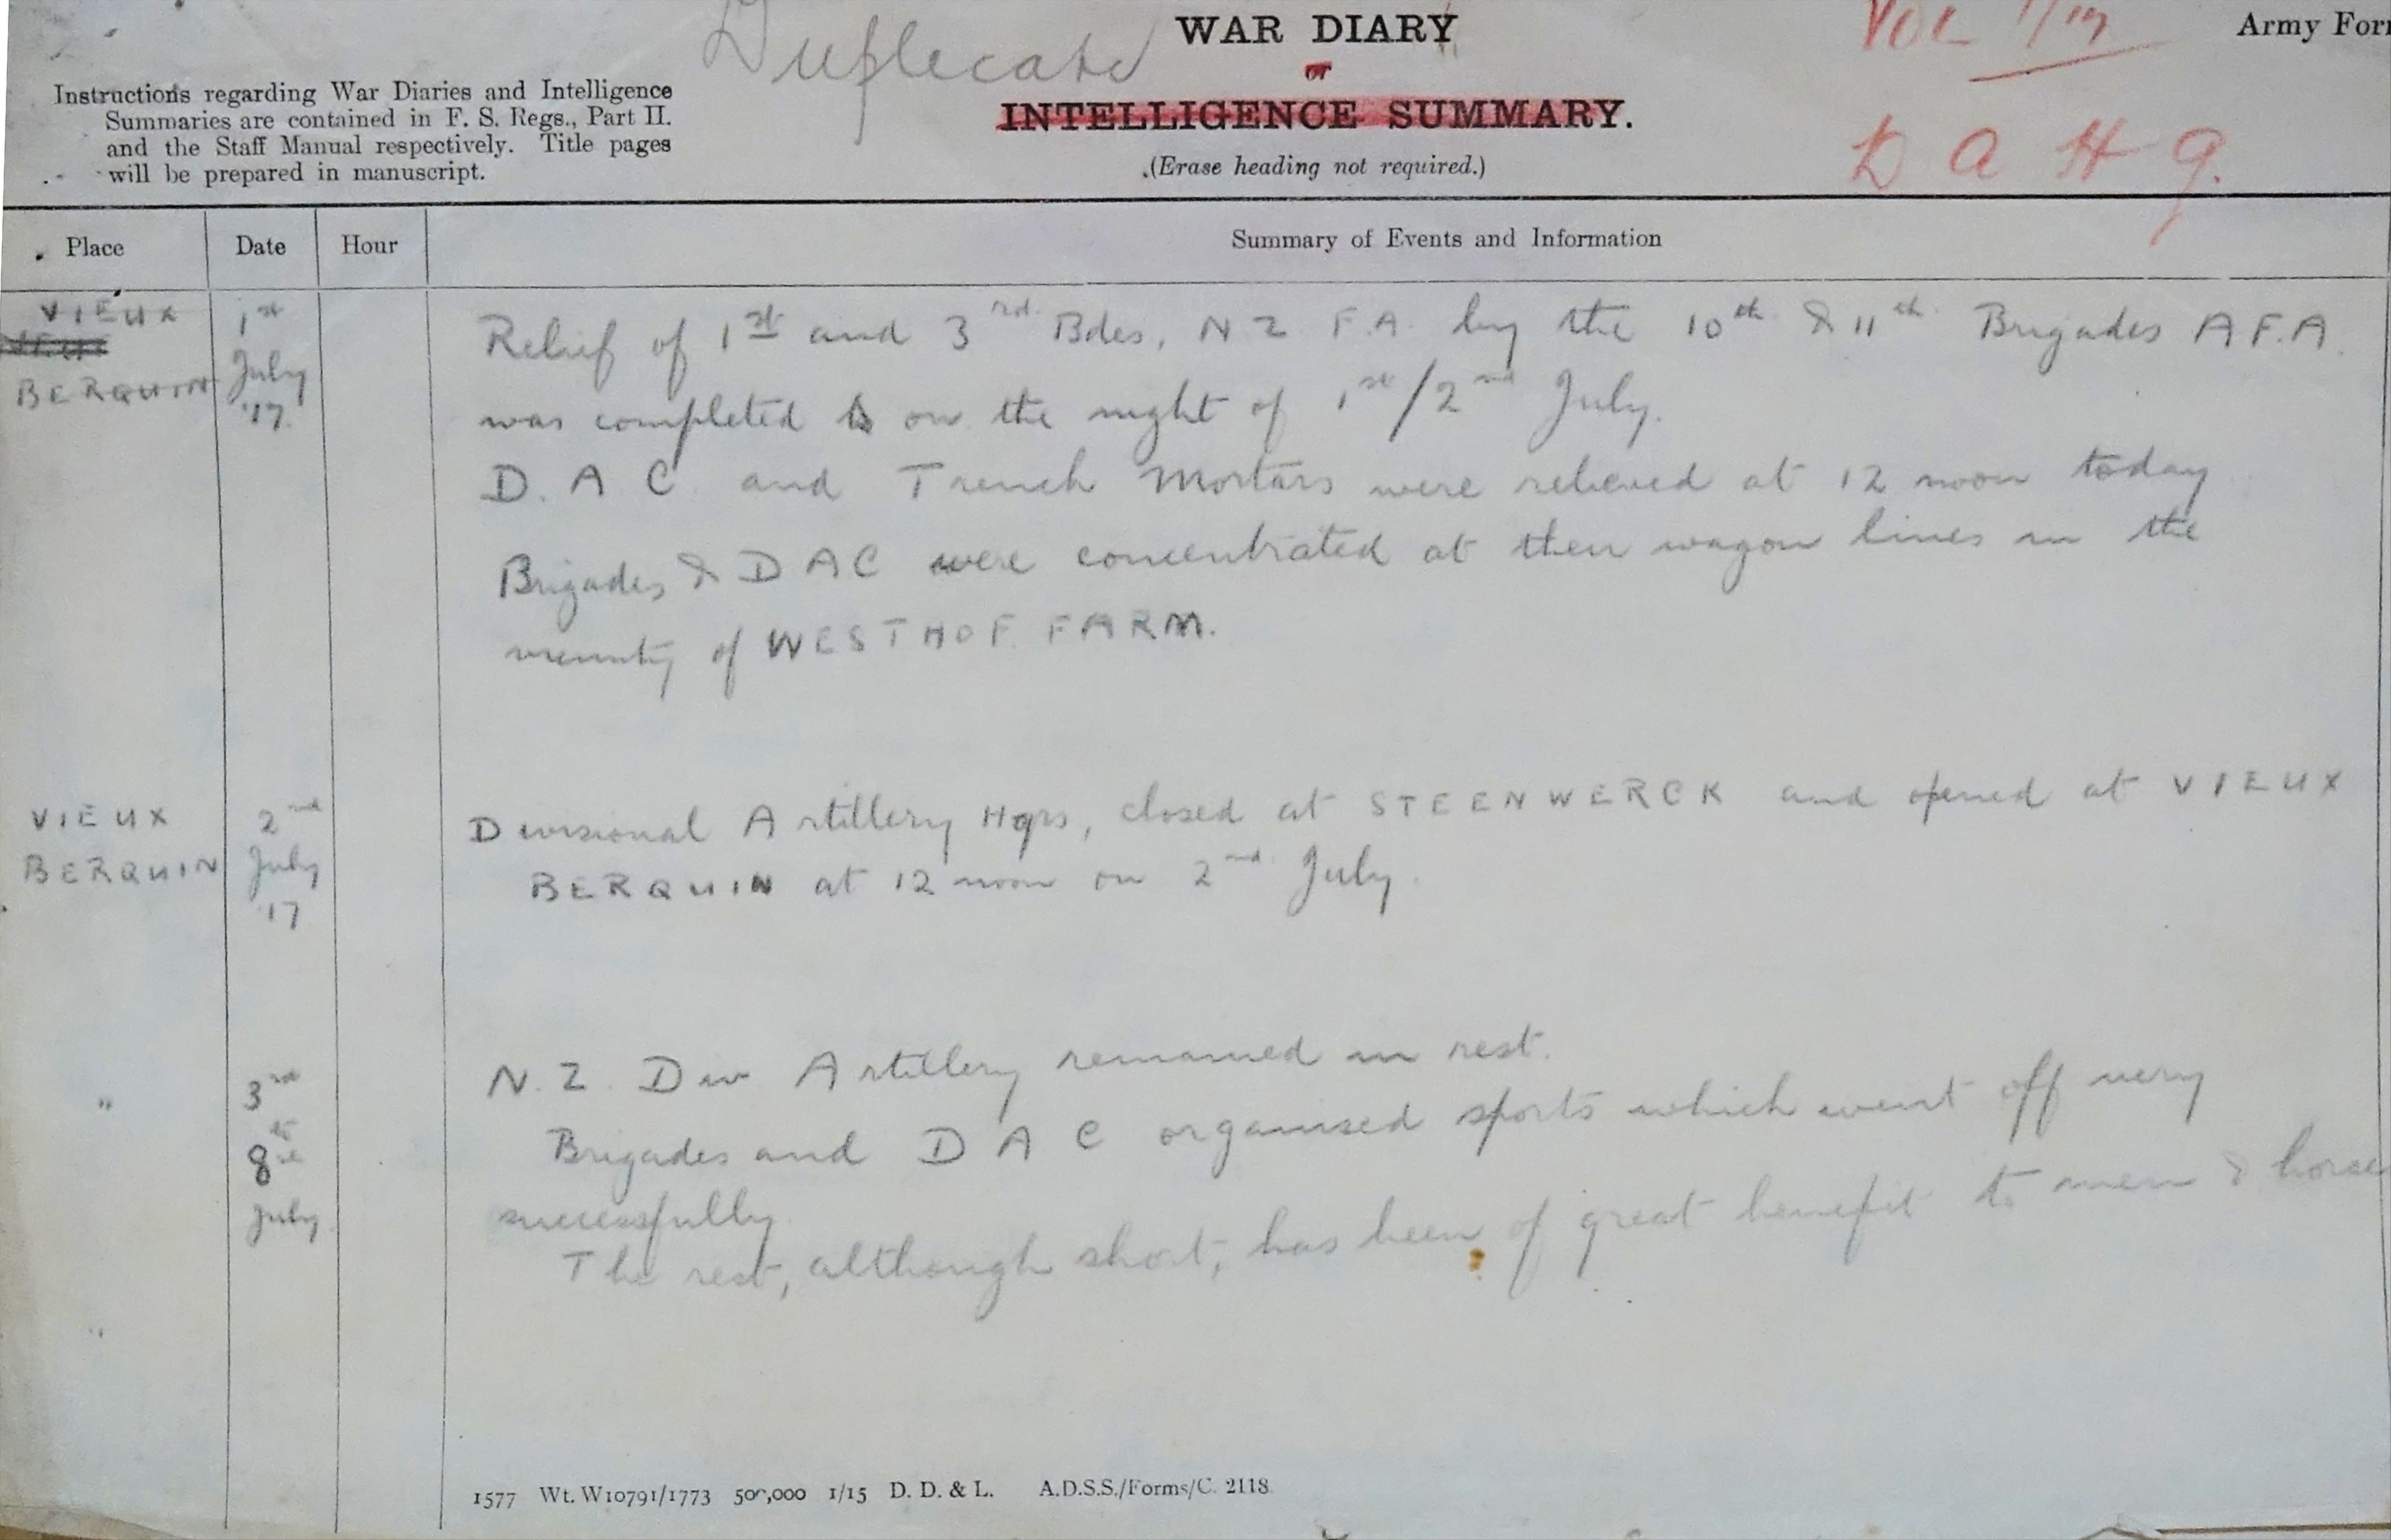 Duplicate
WAR DIARY
or
INTELLIGENCE SUMMARY.
(Erase heading not required.)
Instructions regarding War Diaries and Intelligence
Summaries are contained in F. S. Regs., Part II.
and the Staff Manual respectively. Title pages
will be prepared in manuscript.
VOL 7/17
Army For
D A H Q.
Place Date Hour Summary of Events and Information
VIEUX
BERQUIN
1st
July
'17.
Relief of 1st and 3rd. Bdes, N Z F.A. by the 10th & 11th Brigades A F.A.
was completed on the night of 1st/2nd July.
D. A C. and Trench Mortars were relieved at 12 noon today
Brigades & D AC were concentrated at their wagon lines in the
vicinity of WESTHOF FARM.
VIEUX
BERQUIN
2nd
July
'17
Divisional Artillery Hqrs, closed at STEENWERCK and opened at VIEUX
BERQUIN at 12 noon on 2nd July.
"
3rd
to
8th
July.
N. Z. Div Artillery remained in rest.
Brigades and D A C organised sports which went off very
successfully.
The rest, although short, has been of great benefit to men & horse
"
1577 Wt. W10791/1773 500,000 1/15 D. D. & L. A.D.S.S./Forms/C. 2118.